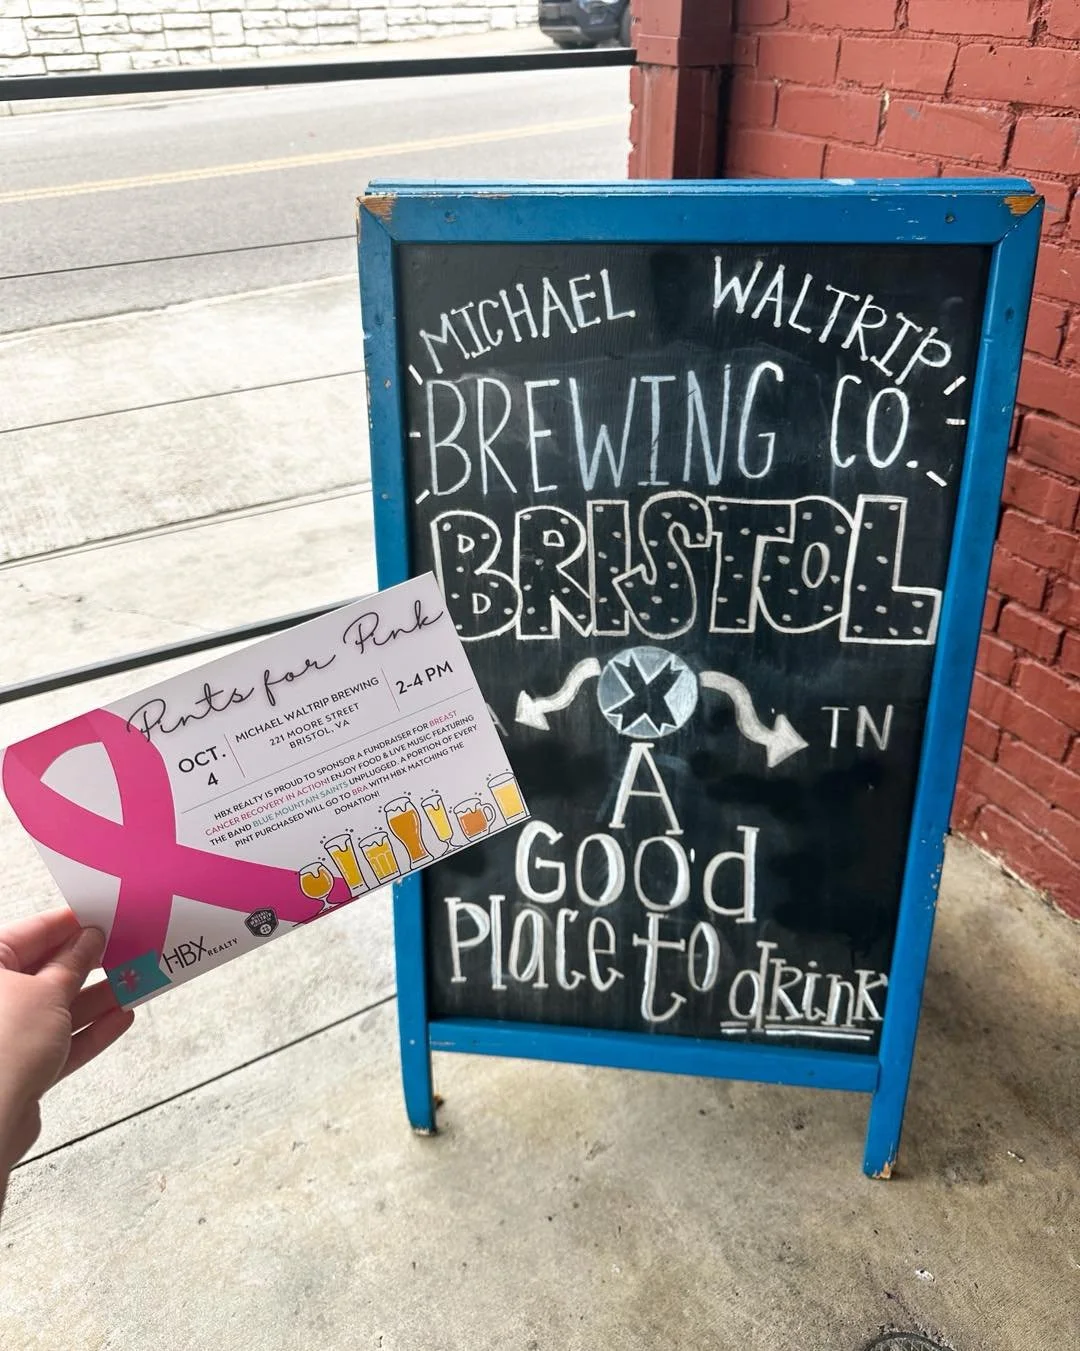 MICHAEL WALTRIP
BREWING CO.
BRISTOL
A TN
A
GOOD
Place to drink
Pints for Pink
OCT.
4
MICHAEL WALTRIP BREWING
221 MOORE STREET
BRISTOL, VA
2-4 PM
HBX REALTY IS PROUD TO SPONSOR A FUNDRAISER FOR BREAST
CANCER RECOVERY IN ACTION! ENJOY FOOD & LIVE MUSIC FEATURING
THE BAND BLUE MOUNTAIN SAINTS UNPLUGGED. A PORTION OF EVERY
PINT PURCHASED WILL GO TO BRA WITH HBX MATCHING THE
DONATION!
HBX REALTY